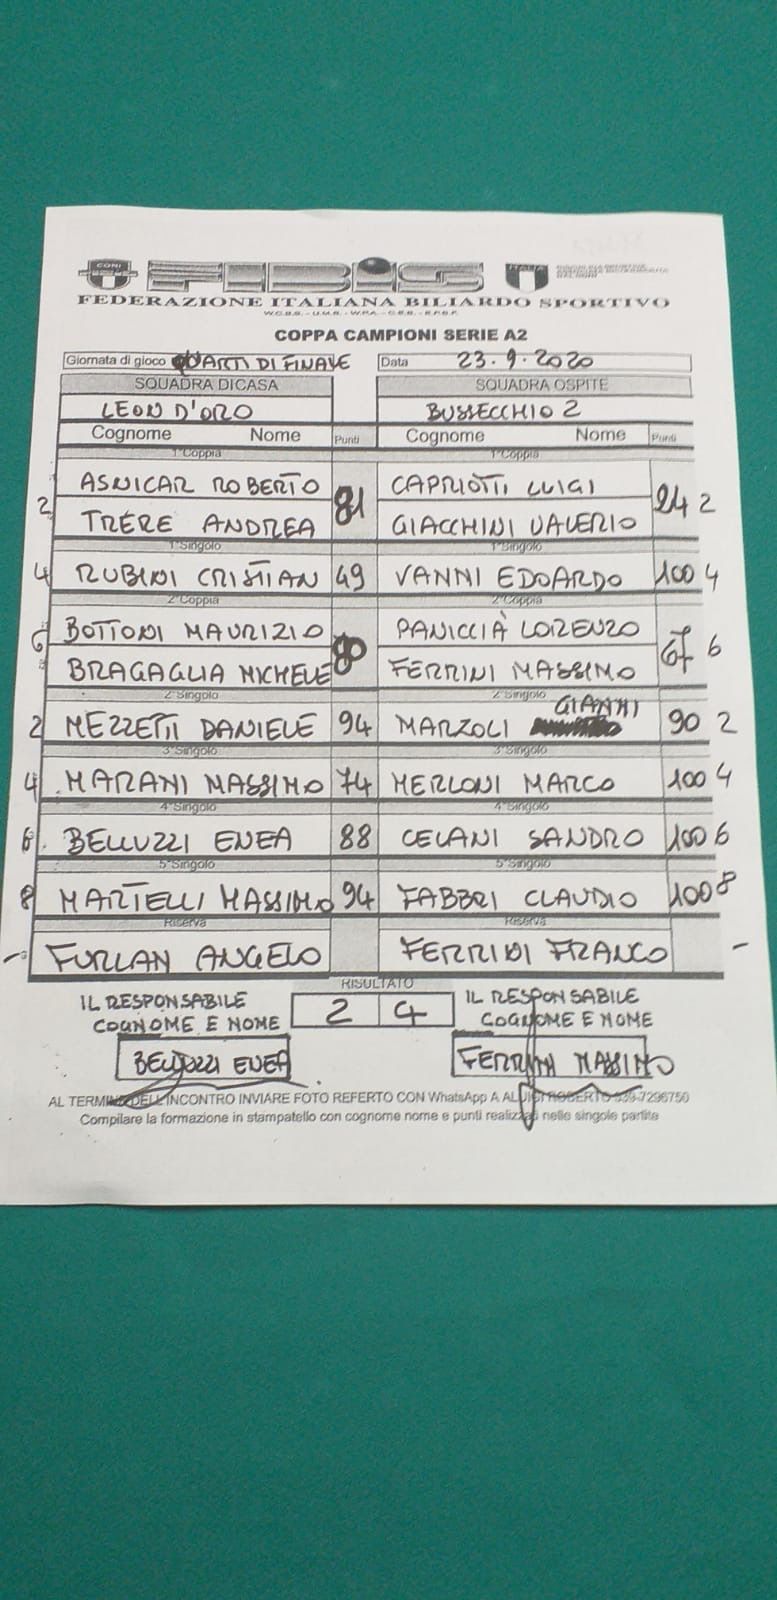 CONI
FIBIS
ITALIA
FEDERAZIONE ITALIANA BILIARDO SPORTIVO
COPPA CAMPIONI SERIE A2
Giornata di gioco QUARTI DI FINALE Data 23.9.2020
SQUADRA DI CASA SQUADRA OSPITE
LEON D'ORO BUSSECCHIO 2
Cognome Nome Punti Cognome Nome Punti
1°Coppia 1°Coppia
ASNICAR ROBERTO CAPRIOTTI LUIGI
2 81 24 2
TRÉRE ANDREA GIACCHINI VALERIO
1°Singolo 1°Singolo
4 RUBINI CRISTIAN 49 VANNI EDOARDO 100 4
2°Coppia 2°Coppia
6 BOTTONI MAURIZIO 80 PANICCIÀ LORENZO 67 6
BRAGAGLIA MICHELE FERRINI MASSIMO
2°Singolo 2°Singolo
2 MEZZETTI DANIELE 94 MARZOLI GIANNI 90 2
3°Singolo 3°Singolo
4 MARANI MASSIMO 74 MERLONI MARCO 100 4
4°Singolo 4°Singolo
6 BELLUZZI ENEA 88 CELANI SANDRO 100 6
5°Singolo 5°Singolo
8 MARTELLI MASSIMO 94 FABBRI CLAUDIO 100 8
Riserva Riserva
- FURLAN ANGELO FERRINI FRANCO -
RISULTATO
IL RESPONSABILE 2 4 IL RESPONSABILE
COGNOME E NOME COGNOME E NOME
BELLUZZI ENEA FERRINI MASSIMO
AL TERMINE DELL'INCONTRO INVIARE FOTO REFERTO CON WhatsApp A ALUIGI ROBERTO 339-7296750
Compilare la formazione in stampatello con cognome nome e punti realizzati nelle singole partite